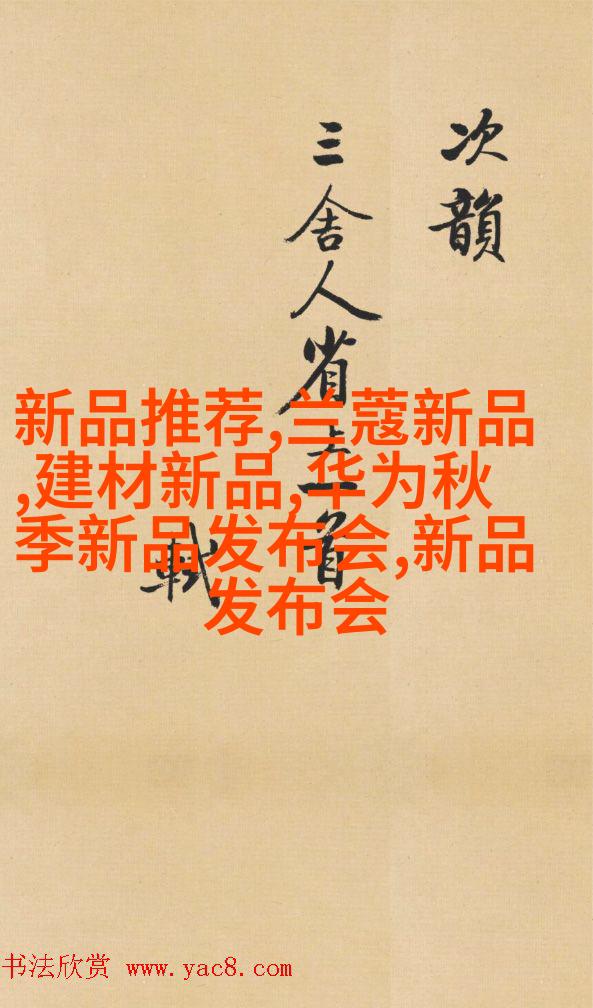 次韻
三舍人省首
軾
新品推荐,兰蔻新品
,建材新品,华为秋
季新品发布会,新品
发布会
书法欣赏 www.yac8.com